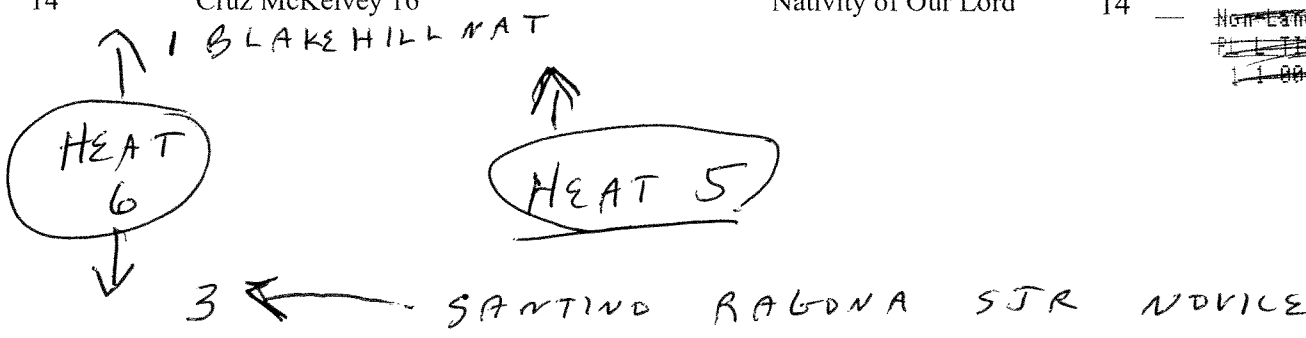 14 Cruz McKelvey 16 Nativity of Our Lord 14 —
1 BLAKE HILL NAT
HEAT
6
HEAT 5
3 ← SANTINO RAGONA SJR NOVICE